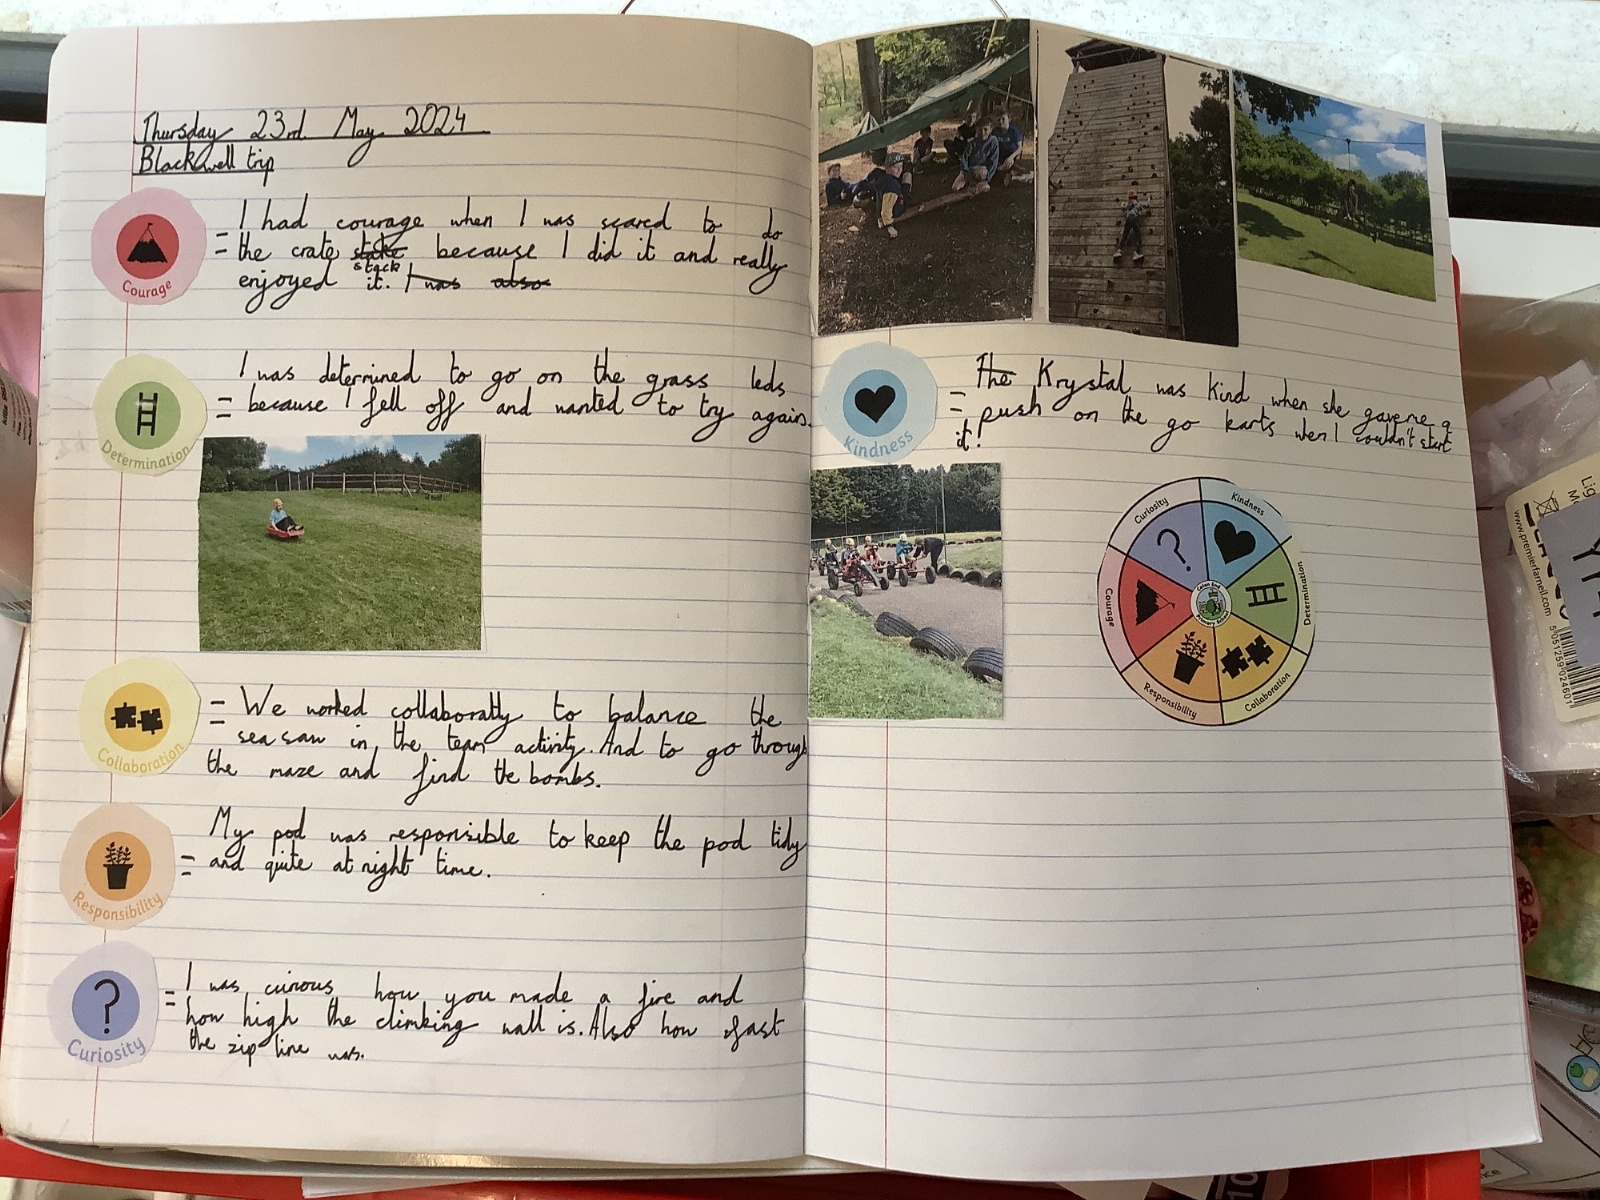 Thursday 23rd May 2024
Blackwell trip
Courage
= I had courage when I was scared to do
the crate stake because I did it and really
stack
enjoyed it. I was also
Determination
= I was determined to go on the grass leds
because I fell off and wanted to try again.
Collaboration
= We worked collaboratly to balance the
seasaw in the team activity. And to go through
the maze and find the bombs.
Responsibility
= My pod was responsible to keep the pod tidy
and quite at night time.
Curiosity
= I was curious how you made a fire and
how high the climbking wall is. Also how fast
the zip line was.
Kindness
= The Krystal was kind when she gave me a
push on the go karts when I couldn't start
it!
Curiosity
Kindness
Determination
Collaboration
Responsibility
Courage
Primary School
www.premierfarnell.com
5051259024601